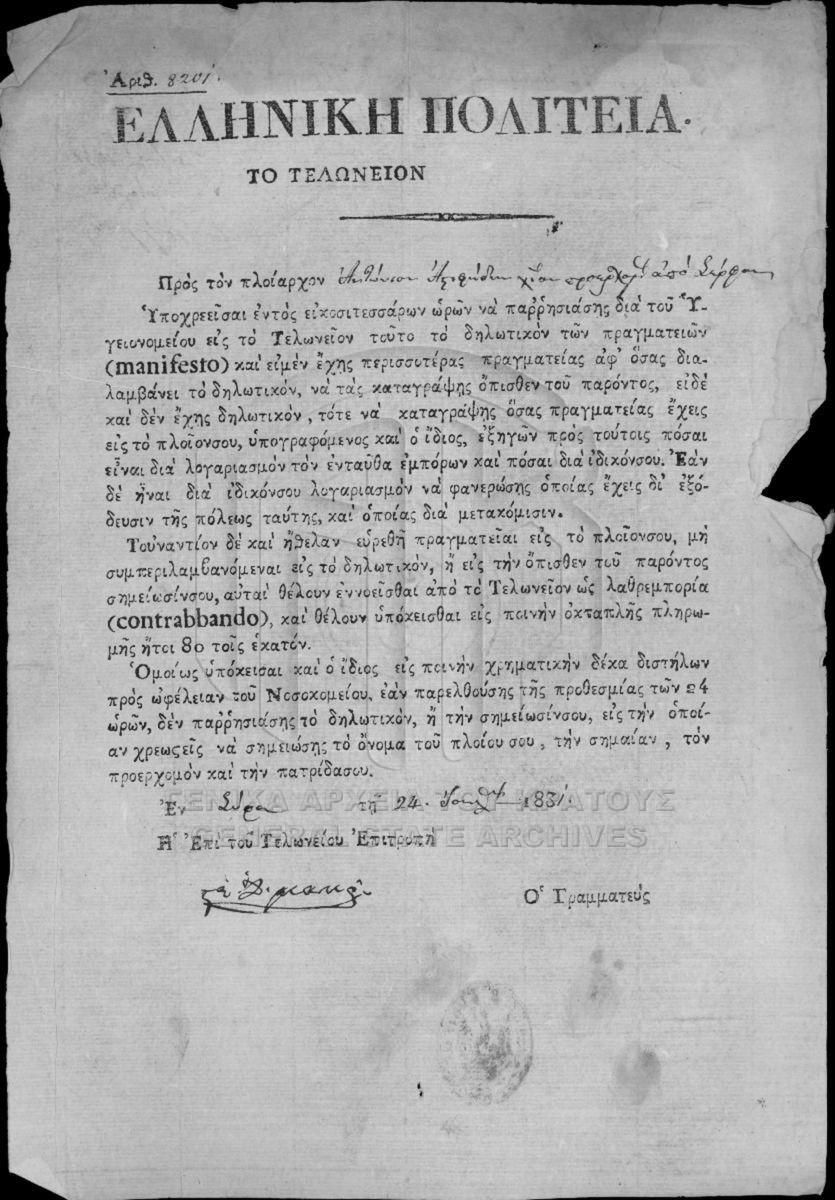 Ἀριθ. 8201.
ΕΛΛΗΝΙΚΗ ΠΟΛΙΤΕΙΑ.
ΤΟ ΤΕΛΩΝΕΙΟΝ
Πρὸς τὸν πλοίαρχον Ἀντώνιον ἀπὸ
Ὑποχρεεῖσαι ἐντὸς εἰκοσιτεσσάρων ὡρῶν νὰ παῤῥησιάσῃς διὰ τοῦ Ὑ-
γειονομείου εἰς τὸ Τελωνεῖον τοῦτο τὸ δηλωτικὸν τῶν πραγματειῶν
(manifesto) καὶ εἰμὲν ἔχῃς περισσοτέρας πραγματείας ἀφ᾽ ὅσας δια-
λαμβάνει τὸ δηλωτικὸν, νὰ τὰς καταγράψῃς ὄπισθεν τοῦ παρόντος, εἰδὲ
καὶ δὲν ἔχῃς δηλωτικὸν, τότε νὰ καταγράψῃς ὅσας πραγματείας ἔχεις
εἰς τὸ πλοῖονσου, ὑπογραφόμενος καὶ ὁ ἴδιος, ἐξηγῶν πρὸς τούτοις πόσαι
εἶναι διὰ λογαριασμὸν τὸν ἐνταῦθα ἐμπόρων καὶ πόσαι διὰ ἰδικόνσου. Ἐὰν
δὲ ἦναι διὰ ἰδικόνσου λογαριασμὸν νὰ φανερώσῃς ὁποίας ἔχεις δι᾽ ἐξό-
δευσιν τῆς πόλεως ταύτης, καὶ ὁποίας διὰ μετακόμισιν.
Τοὐναντίον δὲ καὶ ἤθελαν εὑρεθῆ πραγματεῖαι εἰς τὸ πλοῖονσου, μὴ
συμπεριλαμβανόμεναι εἰς τὸ δηλωτικὸν, ἢ εἰς τὴν ὄπισθεν τοῦ παρόντος
σημείωσίνσου, αὐταὶ θέλουν ἐννοεῖσθαι ἀπὸ τὸ Τελωνεῖον ὡς λαθρεμπορία
(contrabbando), καὶ θέλουν ὑπόκεισθαι εἰς ποινὴν ὀκταπλῆς πληρω-
μῆς ἤτοι 80 τοῖς ἑκατόν.
Ὁμοίως ὑπόκεισαι καὶ ὁ ἴδιος εἰς ποινὴν χρηματικὴν δέκα διστήλων
πρὸς ὠφέλειαν τοῦ Νοσοκομείου, ἐὰν παρελθούσης τῆς προθεσμίας τῶν 24
ὡρῶν, δὲν παῤῥησιάσῃς τὸ δηλωτικὸν, ἢ τὴν σημείωσίνσου, εἰς τὴν ὁποί-
αν χρεωςεῖς νὰ σημειώσῃς τὸ ὄνομα τοῦ πλοίου σου, τὴν σημαίαν, τὸν
προερχομὸν καὶ τὴν πατρίδασου.
Ἐν Σύρᾳ τῇ 24. 1831.
Ἡ Ἐπὶ τοῦ Τελωνείου Ἐπιτροπὴ
Ὁ Γραμματεὺς
ΓΕΝΙΚΑ ΑΡΧΕΙΑ ΤΟΥ ΚΡΑΤΟΥΣ
GENERAL STATE ARCHIVES